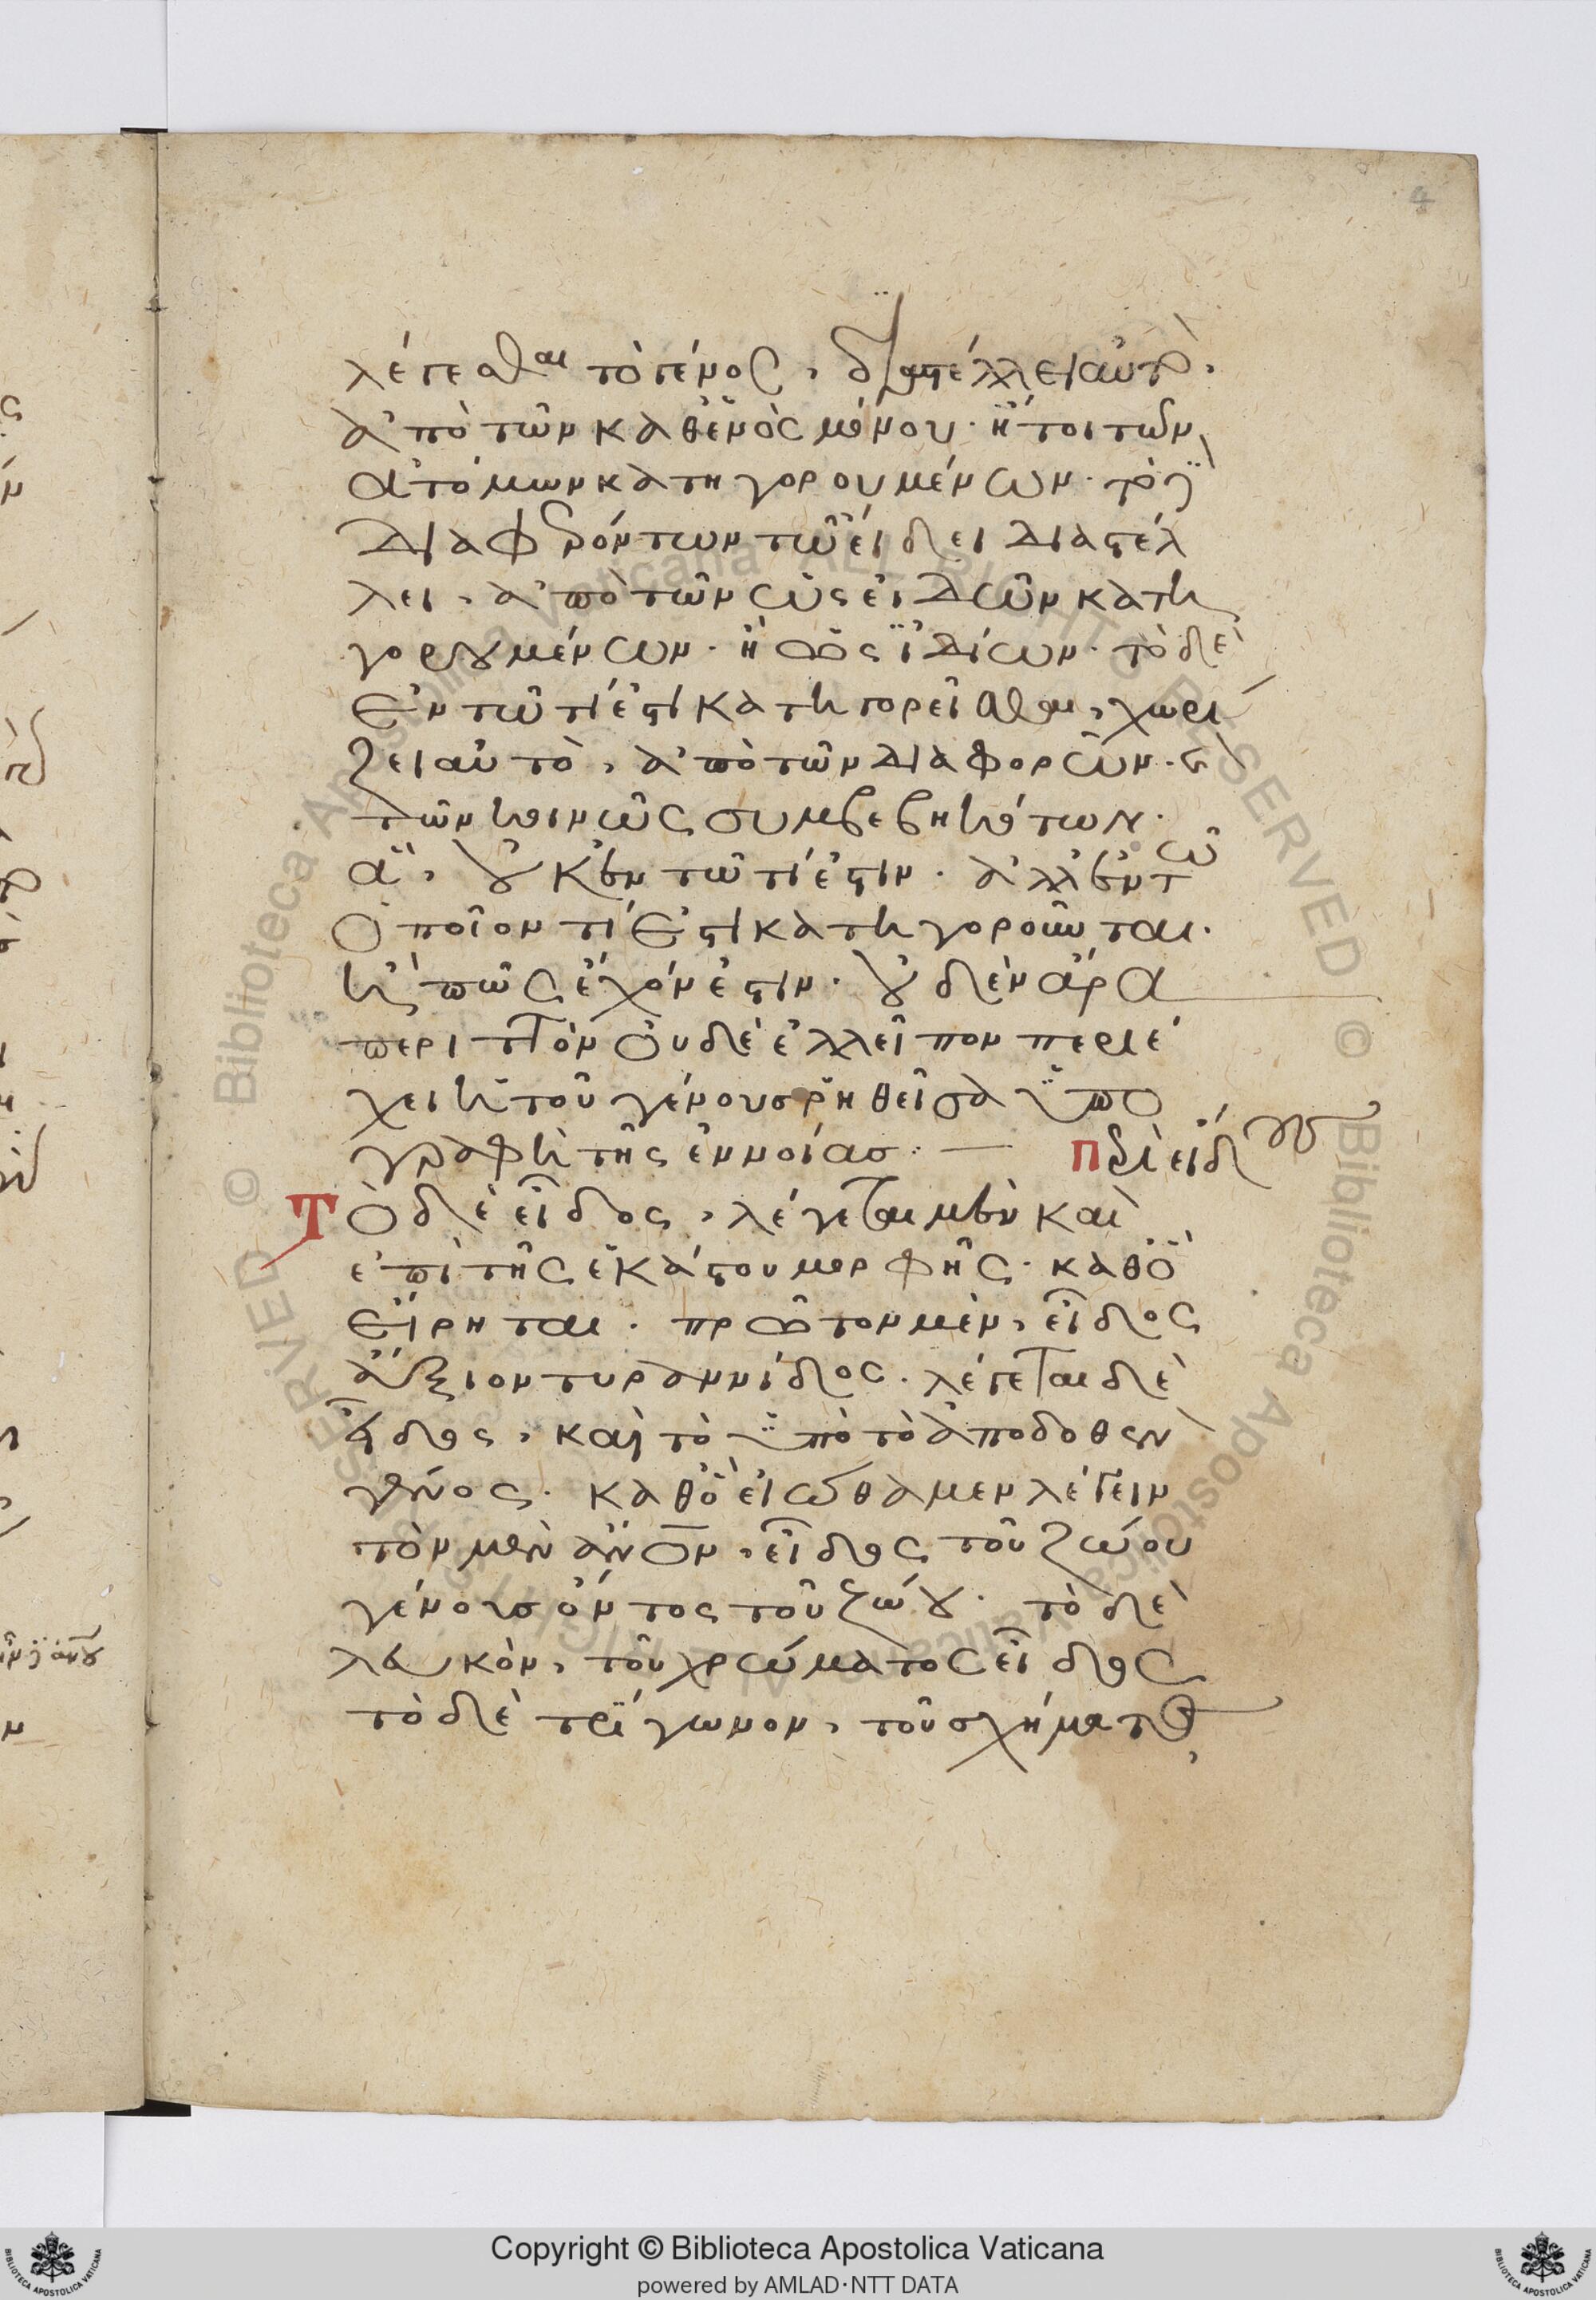 4
λέγεσθαι τὸ γένος, διαστέλλει αὐτὸ.
ἀπὸ τῶν καθενὸς μόνου. ἤτοι τῶν
ἀτόμων κατηγορουμένων. τὸ δὲ
Διαφερόντων τῷ εἴδει Διαστέλ
λει, ἀπὸ τῶν ὡς εἰδῶν κατη
γορουμένων. ἢ ὡς ἰδίων. τὸ δὲ
ἐν τῷ τί ἐστι κατηγορεῖσθαι, χωρί
ζει αὐτὸ, ἀπὸ τῶν Διαφορῶν. καὶ
τῶν κοινῶς συμβεβηκότων.
ἃ, οὐκ ἐν τῷ τί ἐστιν. ἀλλ' ἐν τῷ
ὁποῖον τί ἐστι κατηγοροῦνται.
ἢ πῶς ἔχόν ἐστιν. οὐδὲν ἄρα
περιττὸν οὐδὲ ἐλλεῖπον περιέ
χει ἡ τοῦ γένους ῥηθεῖσα ὑπο
γραφὴ τῆς ἐννοίας. — περὶ εἴδους
Τὸ δὲ εἶδος, λέγεται μὲν καὶ
ἐπὶ τῆς ἑκάστου μορφῆς. καθὸ
εἴρηται. πρῶτον μὲν, εἶδος
ἄξιον τυραννίδος. λέγεται δὲ
εἶδος, καὶ τὸ ὑπὸ τὸ ἀποδοθὲν
γένος. καθὸ εἰώθαμεν λέγειν
τὸν μὲν ἄνον, εἶδος τοῦ ζώου
γένους ὄντος τοῦ ζώου. τὸ δὲ
λευκὸν, τοῦ χρώματος εἶδος
τὸ δὲ τρίγωνον, τοῦ σχήματος,
Copyright © Biblioteca Apostolica Vaticana
powered by AMLAD·NTT DATA